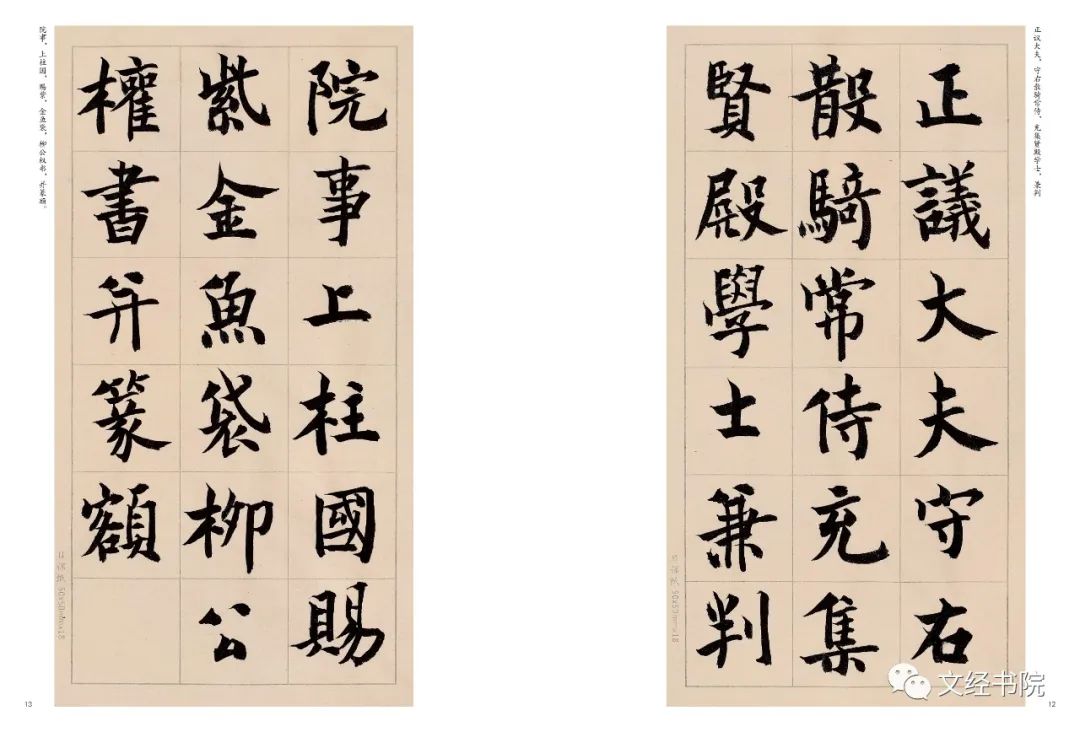 正议大夫，守右散骑常侍，充集贤殿学士，兼判
正議大夫守右
散騎常侍充集
賢殿學士兼判
日课纸 50x50mmx18
12
院事，上柱国，赐紫，金鱼袋，柳公权书，并篆额。
院事上柱國賜
紫金魚袋柳公
權書并篆額
日课纸 50x50mmx18
13
文经书院